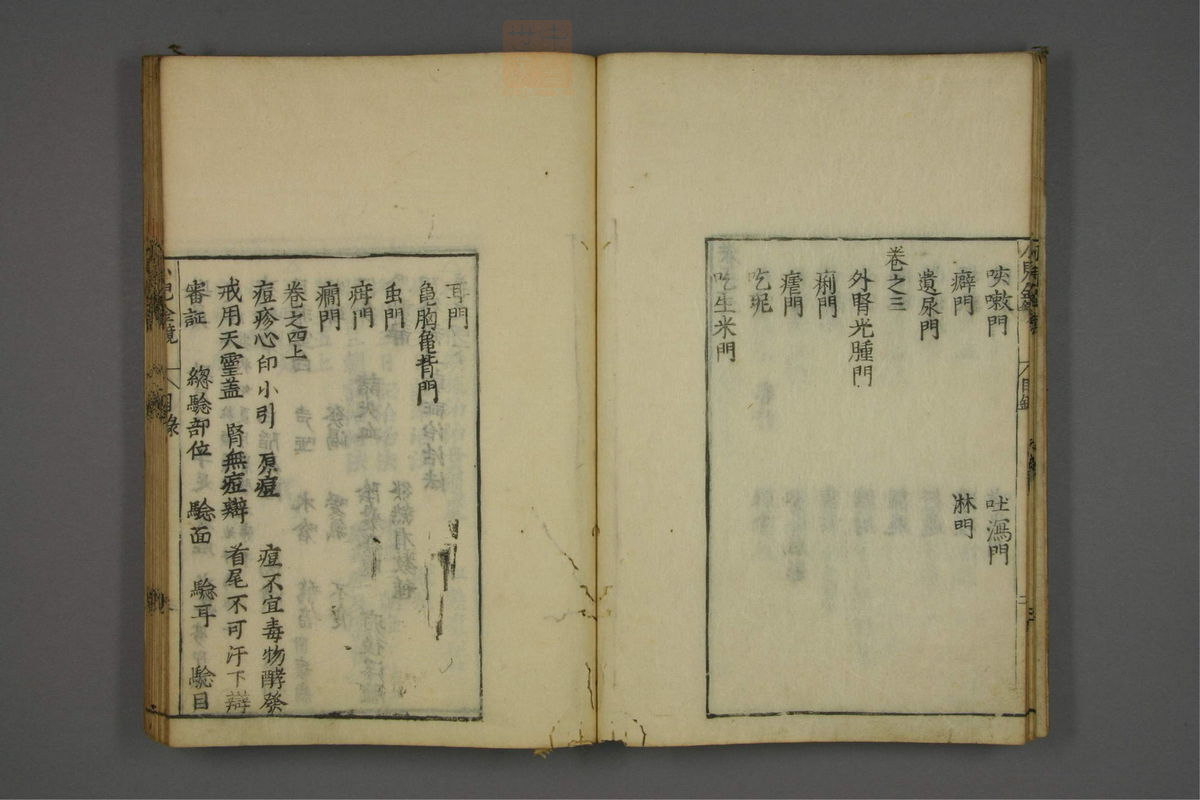 咳嗽門 吐瀉門
癖門 淋門
遺尿門
卷之三
外腎光腫門
痢門
瘧門
吃坭
吃生米門
耳門
龜胸龜背門
虫門
疳門
癇門
卷之四上
痘疹心印小引 原痘 痘不宜毒物酵發
戒用天靈盖 腎無痘辯 首尾不可汗下辯
審証 總驗部位 驗面 驗耳 驗目
目錄